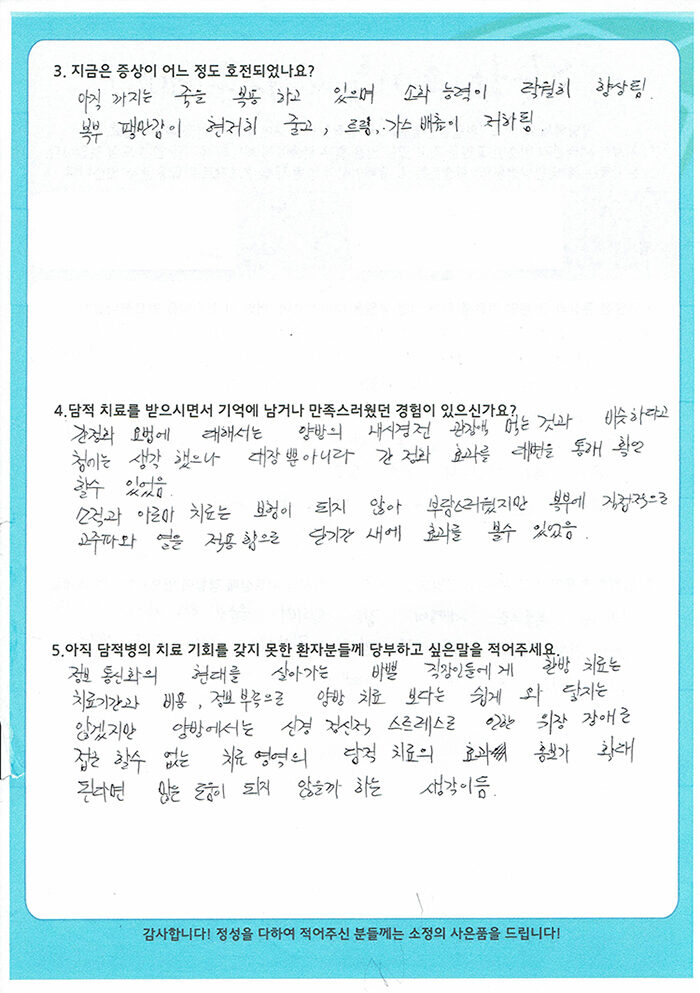 3. 지금은 증상이 어느 정도 호전되었나요?
아직 까지는 죽을 복용 하고 있으며 소화 능력이 탁월히 향상됨.
복부 팽만감이 현저히 줄고, 트림, 가스 배출이 저하됨.
4.담적 치료를 받으시면서 기억에 남거나 만족스러웠던 경험이 있으신가요?
간정화 요법에 대해서는 양방의 내시경전 관장액 먹는 것과 비슷하다고
첨에는 생각 했으나 대장 뿐아니라 간 정화 효과를 대변을 통해 확인
할수 있었음.
소적과 아로마 치료는 보험이 되지 않아 부담스러웠지만 복부에 직접적으로
고주파와 열을 적용 함으로 단기간 새에 효과를 볼수 있었음.
5.아직 담적병의 치료 기회를 갖지 못한 환자분들께 당부하고 싶은말을 적어주세요.
정보 통신화의 현대를 살아가는 바쁠 직장인들에게 한방 치료는
치료기간과 비용, 정보부족으로 양방 치료 보다는 쉽게 와 닿지는
않겠지만 양방에서는 신경 정신적 스트레스로 인한 위장 장애로
접근 할수 없는 치료 영역의 담적 치료의 효과 홍보가 확대
된다면 많은 도움이 되지 않을까 하는 생각이듬.
감사합니다! 정성을 다하여 적어주신 분들께는 소정의 사은품을 드립니다!